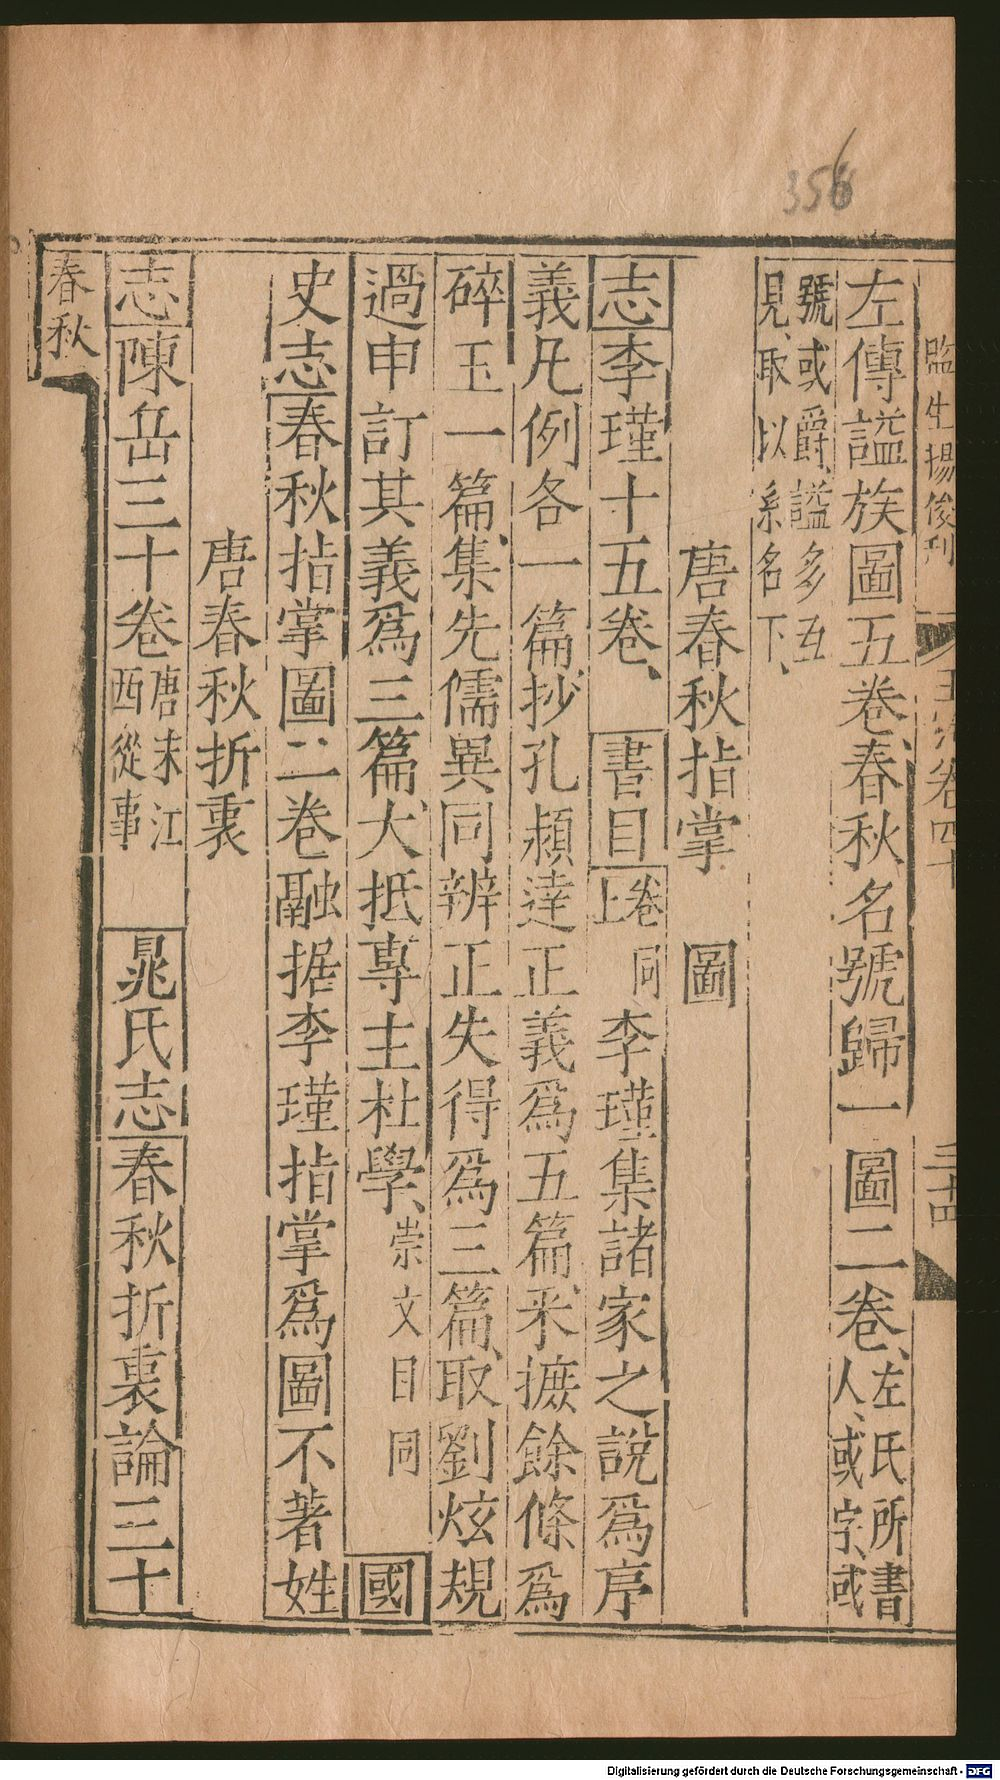 356
監生楊俊刊 玉海卷四十 三十四
左傳諡族圖五卷春秋名號歸一圖二卷左氏所書人或字或
號或爵諡多互見取以系名下
唐春秋指掌 圖
志李瑾十五卷 書目卷上同 李瑾集諸家之說爲序
義凡例各一篇抄孔頴達正義爲五篇釆摭餘條爲
碎玉一篇集先儒異同辨正失得爲三篇取劉炫規
過申訂其義爲三篇大抵專主杜學崇文目同 國
史志春秋指掌圖二卷融据李瑾指掌爲圖不著姓
唐春秋折衷
志陳岳三十卷唐末江西從事 晁氏志春秋折衷論三十
春秋
Digitalisierung gefördert durch die Deutsche Forschungsgemeinschaft - DFG